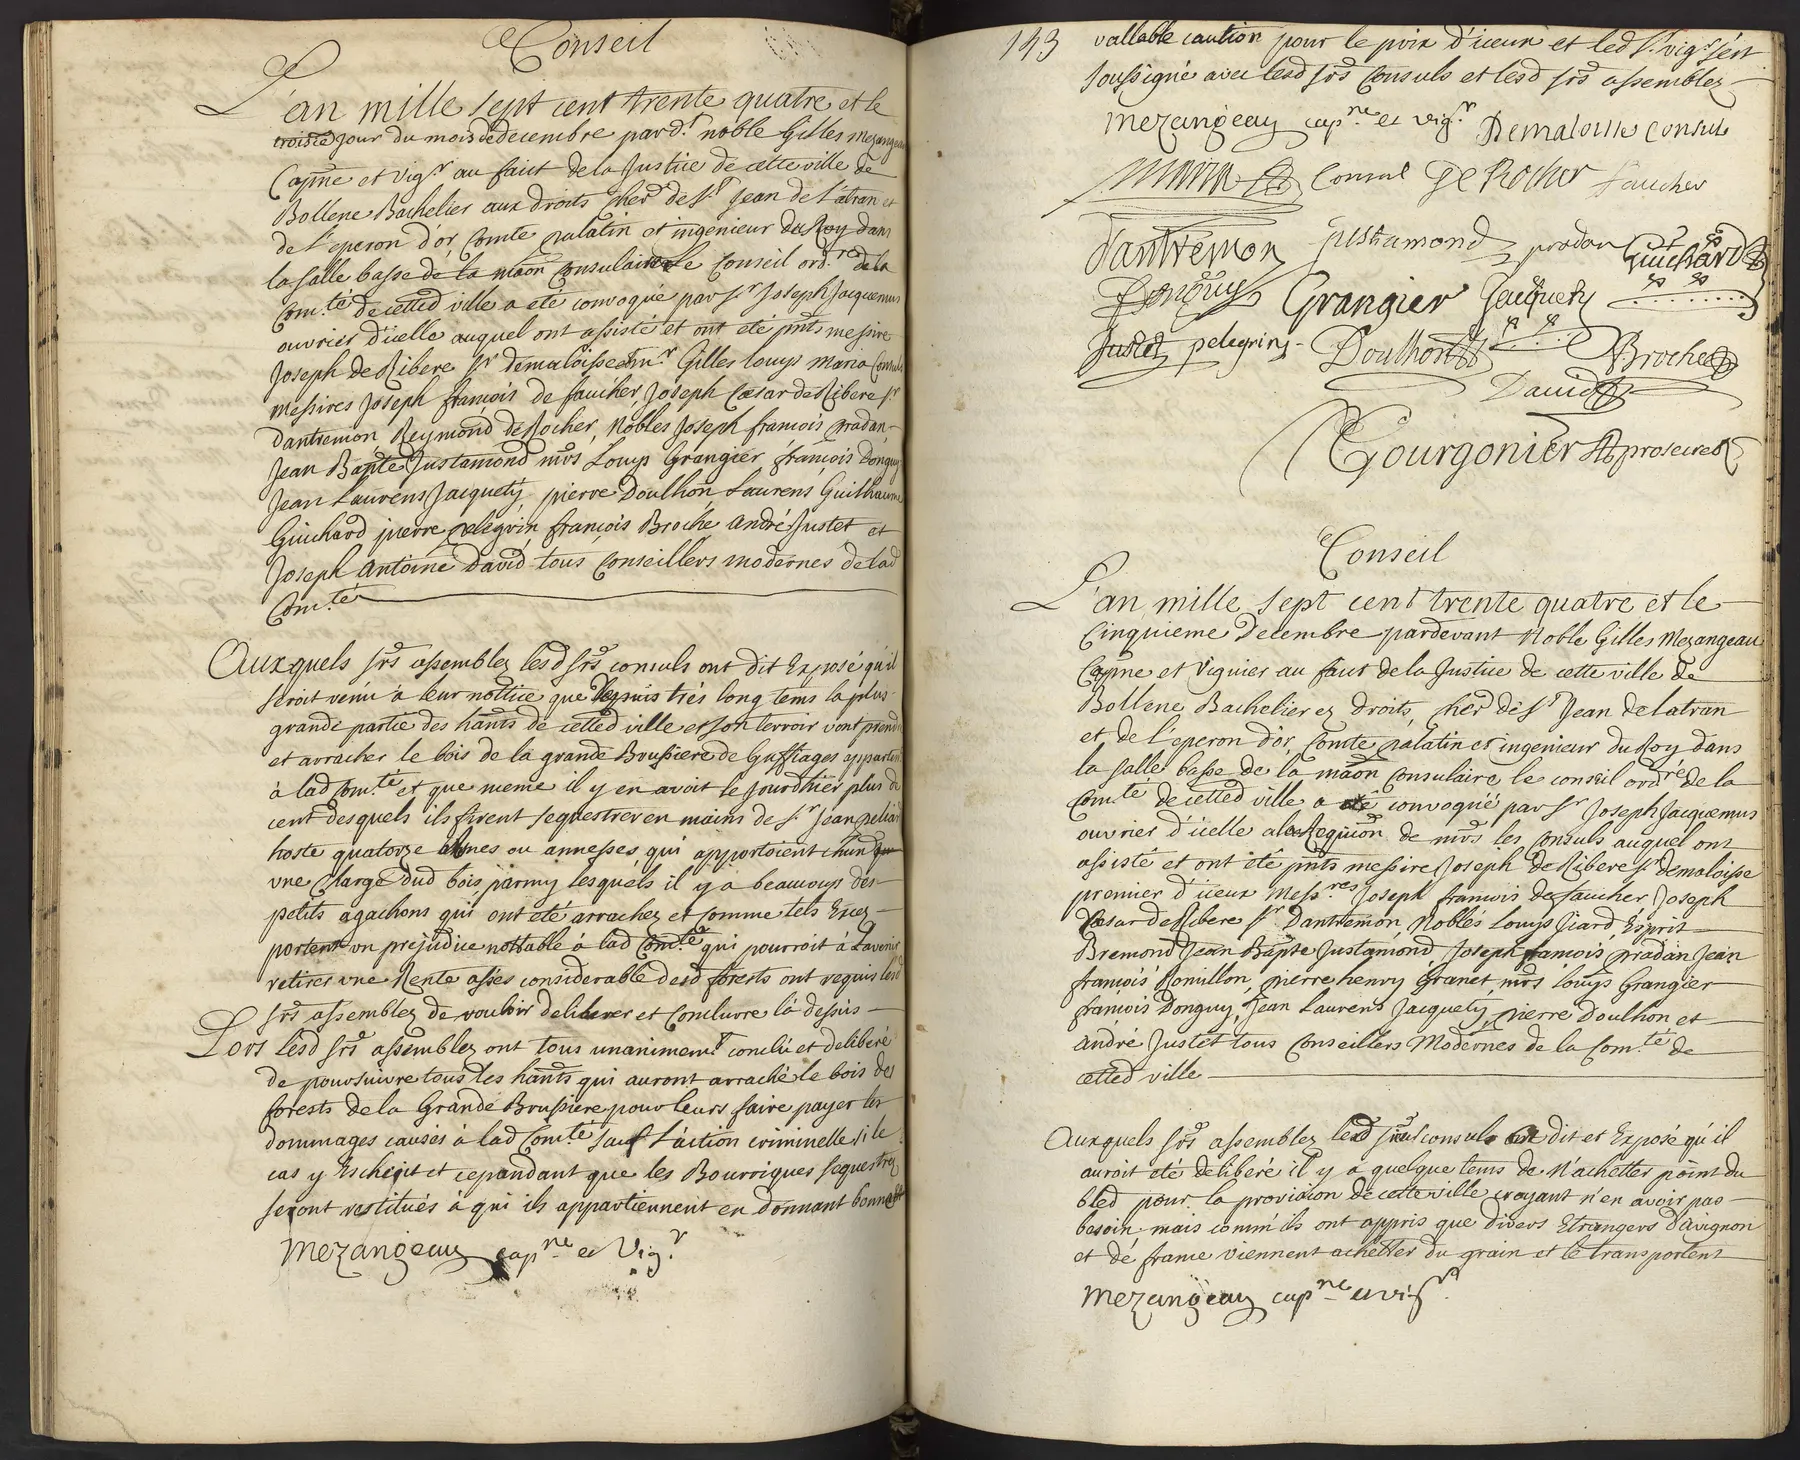 Conseil
L'an mille sept cent trente quatre et le
troisie jour du mois de decembre pard.t noble Gilles Mezangeau
Capne et vig.r au faict de la Justice de cette ville de
Bollene Bachelier aux droits cher de S.t Jean de Latran et
de l'eperon d'or, Comte palatin et ingenieur du Roy dans
la salle basse de la maon Consulaire Le Conseil ord.re de la
Com.té de cetted ville a eté convoqué par s.r Joseph Jacquemus
ouvrier d'icelle auquel ont assisté et ont eté pnts messire
Joseph de Ribere s.r demaloisse et m.r Gilles louys Maria Consuls
messires Joseph françois de faucher, Joseph Cæsar de Ribere s.r
dantremon, Reymond de Rocher, Nobles Joseph francois pradan,
Jean Bapte Justamond mrs Louys Grangier, françois Donguy
Jean Laurens Jacquety, pierre Doulhon, Laurens Guilhaume
Guichard pierre pelegrin, françois Broche André Justet et
Joseph Antoine David tous Conseillers modernes de lad
Com.té
Auxquels srs assemblez lesd srs consuls ont dit Exposé qu'il
seroit venu à leur nottice que depuis trés long tems la plus
grande partie des hants de cetted ville et son terroir vont prendre
et arracher le bois de la grande Boussiere de Guffiages apparten
à lad Com.té et que meme il y en avoit le Jourdhier plus de
cent desquels ils firent sequestrer en mains de s.r Jean peliard
hoste quatorze asnes ou annesses, qui apportoient chun
une charge dud bois, parmy lesquels il y a beaucoup des
petits agachons qui ont eté arrachez et somme tels Excez
portent un prejudice nottable à lad Com.té qui pourroit à Lavenir
retirer une Rente assés considerable desd forests ont requis lesd
srs assemblez de vouloir deliberer et Conclurre là dessus
Lors lesd srs assemblez ont tous unanimem.t conclu et deliberé
de poursuivre tous les hants qui auront arraché le bois des
forests de la Grande Boussiere pour leurs faire payer les
dommages causés à lad Com.té sauf L'action criminelle si le
cas y Eschoit et cepandant que les Bourriques sequestrez
seront restitués à qui ils appartiennent en donnant bonne et
Mezangeau cap.ne et Vig.r
143
vallable caution pour le prix d'iceux et led s.r vig.r s'ést
soussigné avec lesd srs Consuls et lesd srs assemblez
Mezangeau cap.ne et vig.r Demaloisse Consul
Maria Consul De Rocher faucher
Dantremon justamond pradan Guichard
Donguy Grangier Jacquety
Justet pelegrin Doulhon Broche
David
Gourgonier
Conseil
L'an mille sept cent trente quatre et le
Cinquieme Decembre pardevant Noble Gilles Mezangeau
Capne et Viguier au faict de la Justice de cette ville de
Bollene Bachelier ez droits, cher de S.t Jean de latran
et de l'eperon d'or, Comte palatin et ingenieur du Roy dans
la salle basse de la maon Consulaire le conseil ord.re de la
Com.té de cetted ville a eté convoqué par s.r Joseph Jacquemus
ouvrier d'icelle a la Requion de mrs les Consuls auquel ont
assisté et ont eté pnts messire Joseph de Ribere s.r demaloisse
premier d'iceux Mess.res Joseph francois de faucher Joseph
Cæsar de Ribere s.r Dantremon, Nobles Louys Jiard, Esprit
Bremond Jean Bapte Justamond, Joseph francois pradan Jean
françois Romillon, pierre henry Granet, mrs louys Grangier
françois Donguy, Jean Laurens Jacquety, pierre Doulhon et
André Justet tous Conseillers Modernes de la Com.té de
cetted ville
Auxquels srs assemblez lesd consuls dit et Exposé qu'il
auroit eté deliberé il y a quelque tems de N'achetter point du
bled pour la provision de cette ville croyant n'en avoir pas
besoin, mais comm'ils ont appris que divers Etrangers d'avignon
et de france viennent achetter du grain et le transportent
Mezangeau cap.ne et vig.r